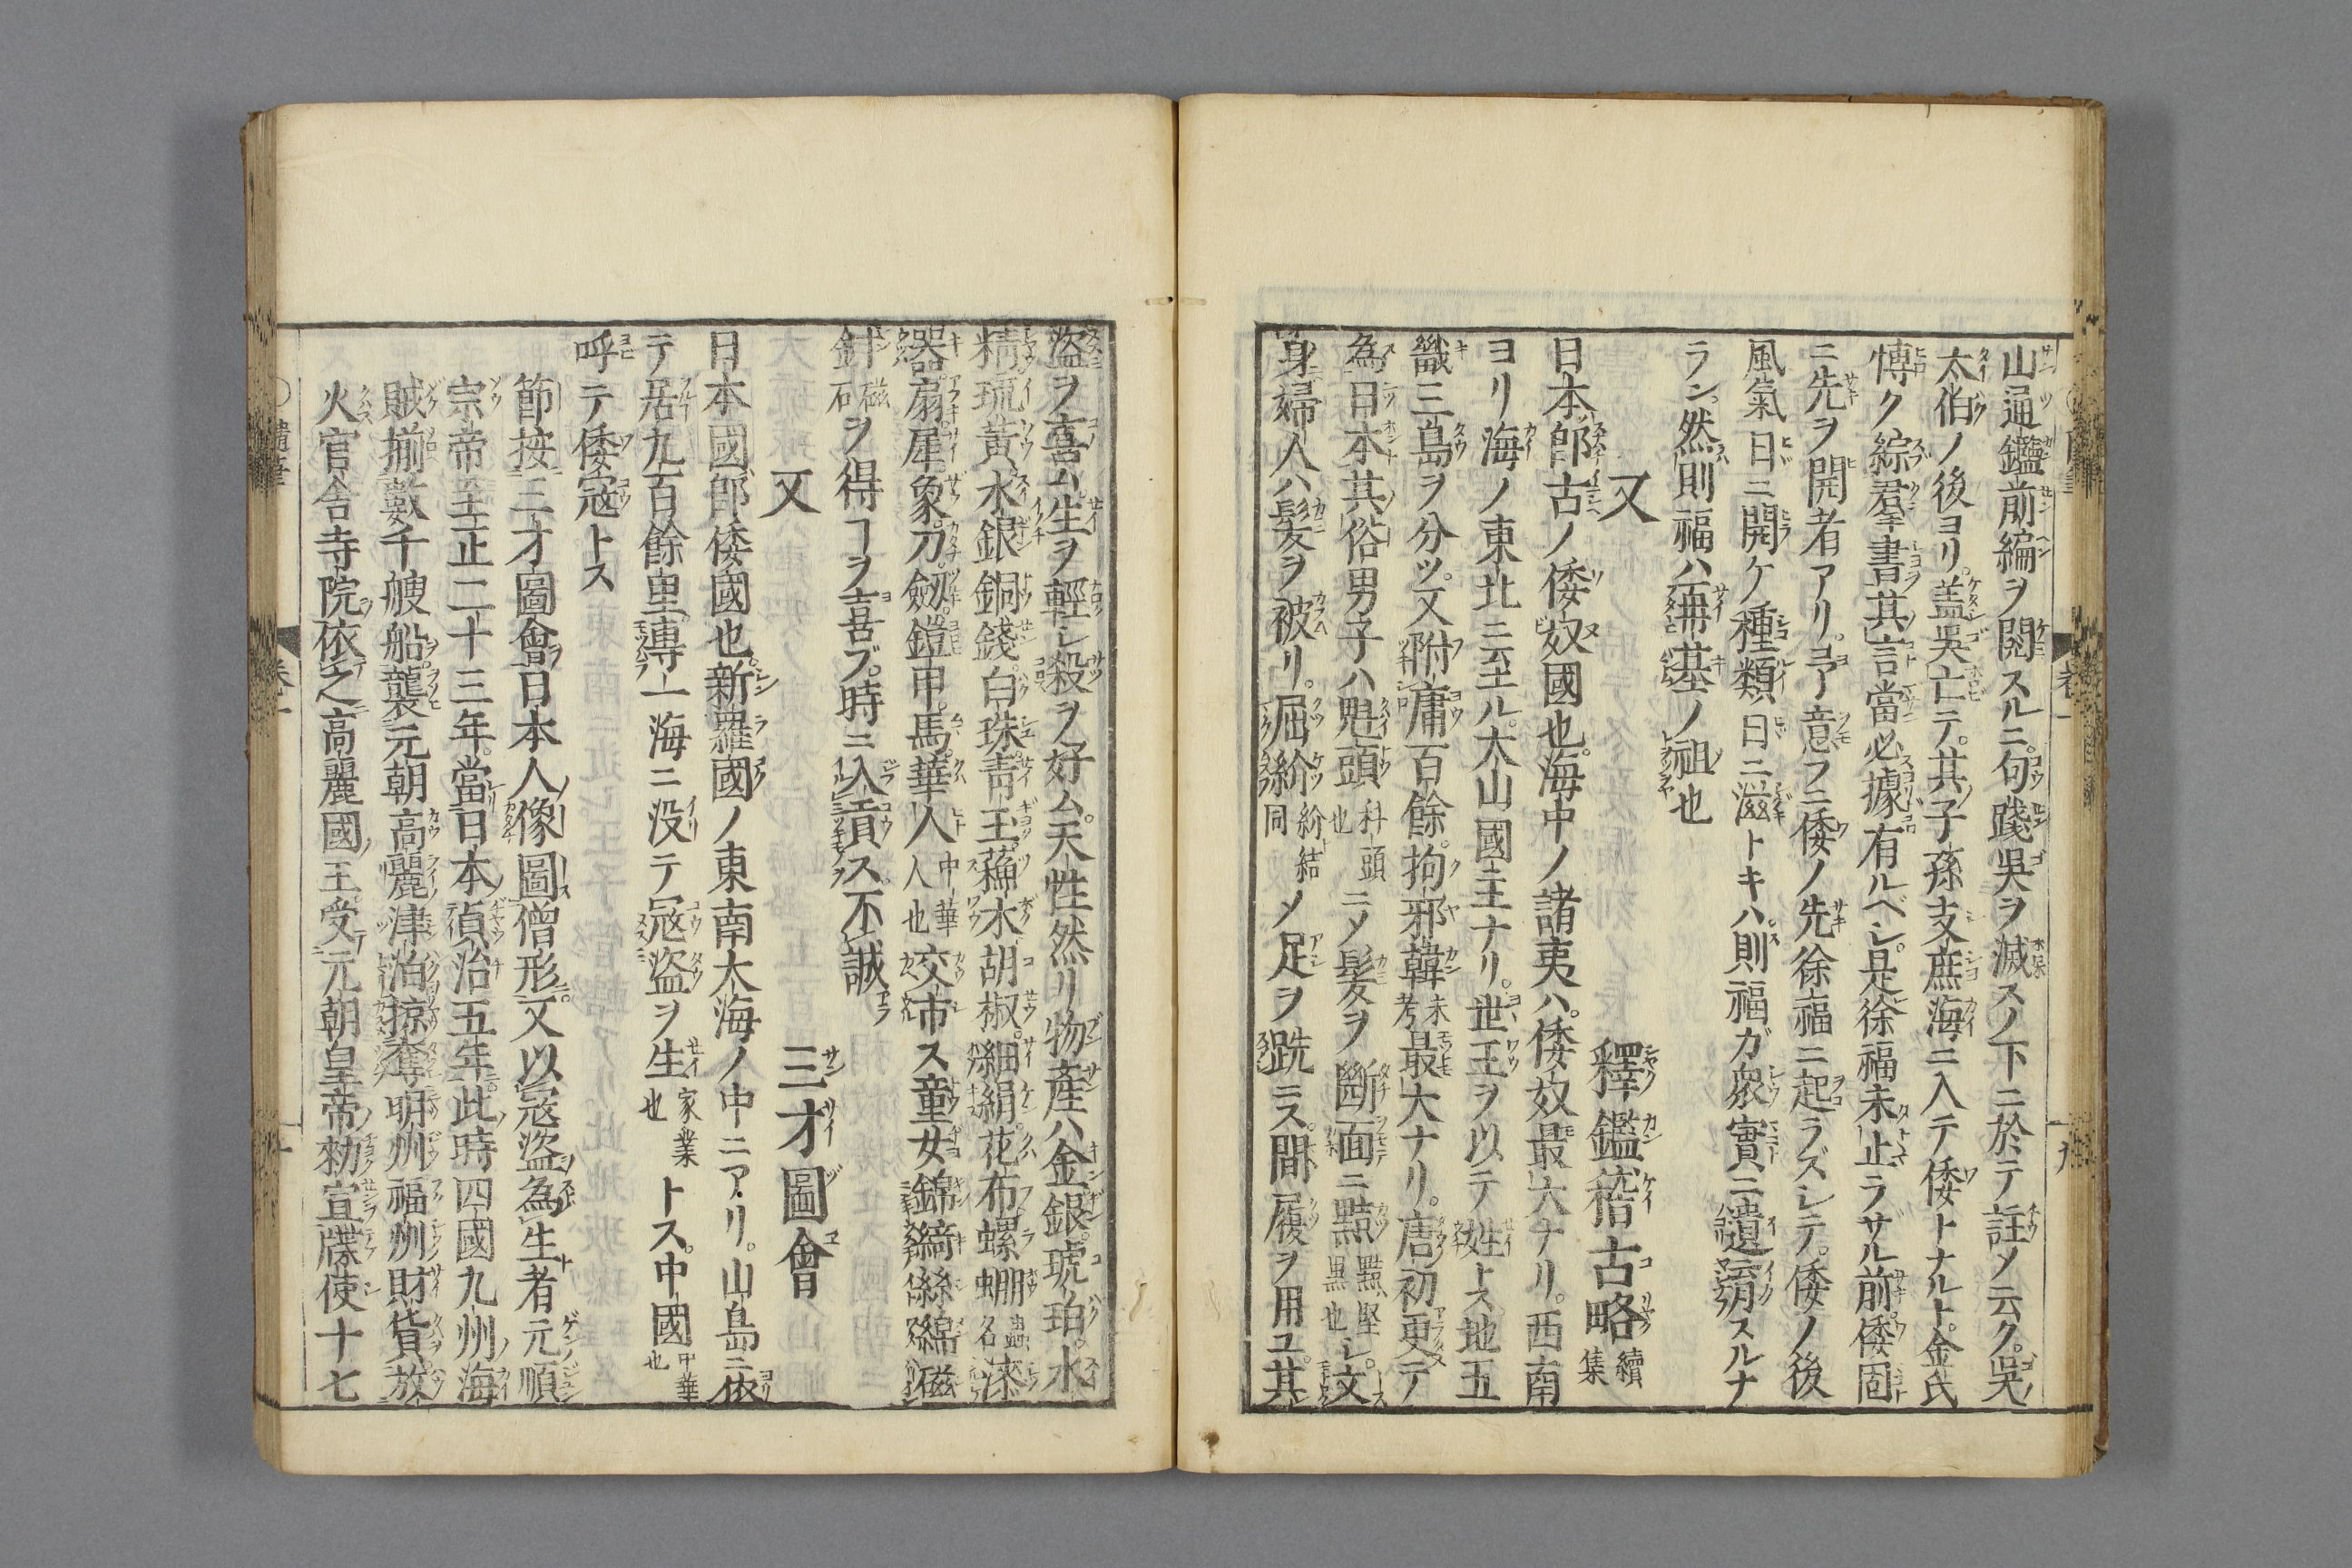 山通鑑前編ヲ閲スルニ。句踐吳ヲ滅スノ下ニ於テ註ノ云ク。吳ノ
太伯ノ後ヨリ。盖吳亡テ。其子孫支庶海ニ入テ倭トナルト。金氏
博ク綜羣書其言當必據有ルベシ。是徐福未止ラザル前倭固
ニ先ヲ開者アリ。ヨ意フニ倭ノ先徐福ニ起ラズシテ。倭ノ後
風氣日ニ開ケ種類日ニ滋トキハ。則福ガ衆實ニ遺育スルナ
ラン。然則福ハ再基ノ祖也
又 釋鑑稽古略續集
日本卽古ノ倭奴國也。海中ノ諸夷ハ。倭奴最大ナリ。西南
ヨリ海ノ東北ニ至ル。大山國主ナリ。世王ヲ以テ姓トス地五
畿三島ヲ分ツ。又附庸百餘。拘邪韓未考最大ナリ。唐初更テ
為日本其俗男子ハ魁頭科頭也ニメ髪ヲ斷面ニ黥黥ハ堅黒也シ。文
身婦人ハ髪ヲ被リ。屈紒紒ト結同メ足ヲ跣ニス。間履ヲ用ユ。其
盗ヲ喜ム生ヲ輕シ殺ヲ好ム。天性然リ物產ハ金銀。琥珀。水
精琉黃水銀銅錢白珠青玉蘓木胡椒。細絹花布螺蝴蟲名漆
器。扇。犀象。刀。劔。鎧甲。馬。華人中華人也交市ス童女錦綺絲綿磁
針磁石ヲ得ヿヲ喜ブ。時ニ入貢ス。不誠
又 三才圖會
日本國卽倭國也。新羅國ノ東南大海ノ中ニアリ。山島ニ依
テ居九百餘里。專一海ニ没テ冦盗ヲ生家業也トス。中國中華也
呼テ倭冦トス
節按三才圖會日本人像圖僧形。又以冦盗為生者元順
宗帝至正二十三年。當日本貞治五年。此時四國九州海
賊揃數千艘船襲元朝高麗津泊掠奪明州福州財貨放
火官舍寺院依之高麗國王。受元朝皇帝勑宣牒使十七